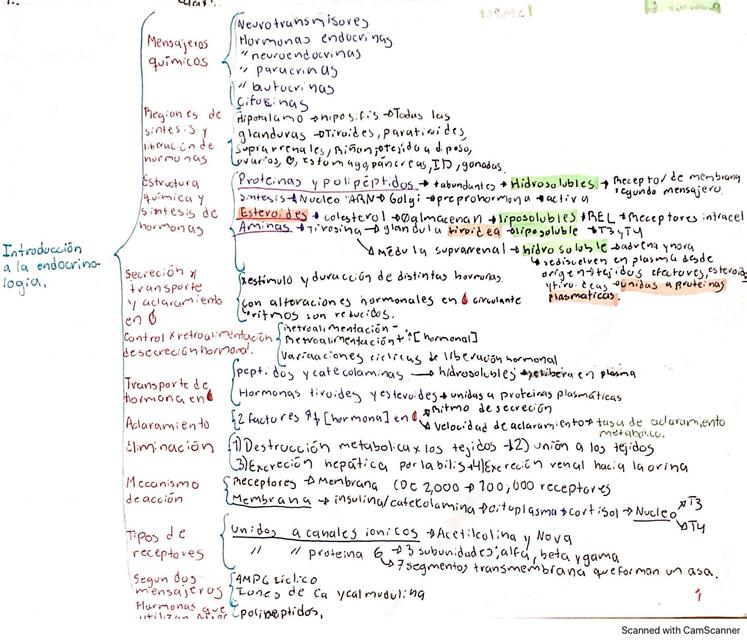 Introducción
a la endocrino-
logía.
Mensajeros
químicos
Neurotransmisores
Hormonas endocrinas
" neuroendocrinas
" paracrinas
" autocrinas
Citosinas
Regiones de
síntesis y
liberación de
hormonas
Hipotálamo → hiposifis → Todas las
glandulas → Tiroides, paratiroides,
suprarrenales, Riñon, tejido adiposo,
ovarios, estomago, páncreas, ID, gonadas.
Estructura
química y
síntesis de
hormonas
Proteínas y polipéptidos → +abundantes → Hidrosolubles → Receptor de membrana
segundo mensajero.
síntesis → Nucleo "ARN → Golgi → preprohormona → activa
Esteroides → colesterol → almacenan → liposolubles → REL → Receptores intracel
Aminas → Tirosina → glandula tiroidea → liposoluble → T3 y T4
→ Médula suprarrenal → hidrosoluble → adrena y nora
→ se disuelven en plasma desde
origen → tejidos efectores, esteroid
y tiroideas → unidas a proteinas
plasmaticas.
Secreción x
transporte
y aclaramiento
en
x estímulo y duracción de distintas hormonas.
con alteraciones hormonales en circulante
ritmos son reducidos.
Control x retroalimentación
de secreción hormonal.
Retroalimentación -
Retroalimentación + ↑[hormonal]
Variaciones cíclicas de liberación hormonal
Transporte de
hormona en
peptidos y catecolaminas → hidrosolubles → se libera en plasma
Hormonas tiroides y esteroides → unidas a proteinas plasmáticas
Aclaramiento
2 factores ↑↓ [hormona] en → Ritmo de secreción
→ Velocidad de aclaramiento → tasa de aclaramiento
metabolico.
Eliminación
1) Destrucción metabolica x los tejidos → 2) unión a los tejidos
3) Excreción hepática por la bilis → 4) Excreción renal hacia la orina
Mecanismo
de acción
Receptores → Membrana (DE 2,000 → 100,000 receptores
Membrana → insulina/catecolamina → citoplasma → cortisol → Nucleo → T3
→ T4
Tipos de
receptores
unidos a canales ionicos → Acetilcolina y Nova
" " proteina G → 3 subunidades; alfa, beta y gama
→ 7 segmentos transmembrana que forman un asa.
Segundos
mensajeros
AMPG cíclico
Iones de Ca y calmodulina
Hormonas que
utilizan
polipeptidos.
1
Scanned with CamScanner